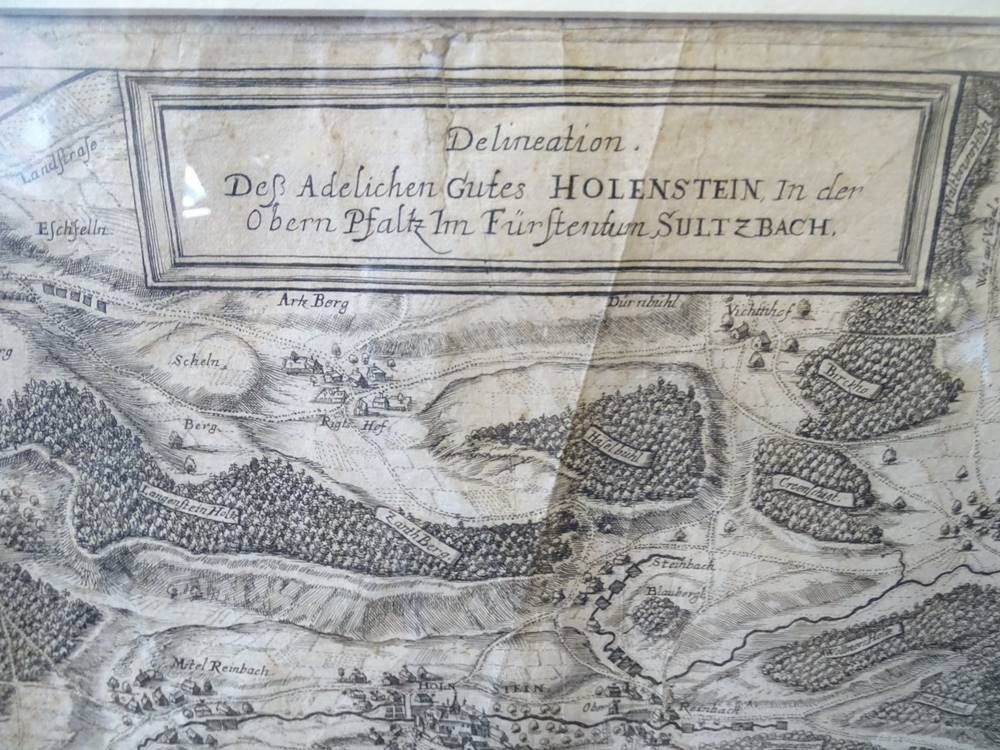 Delineation.
Deß Adelichen Gutes HOLENSTEIN, In der
Obern Pfaltz Im Fürstentum SULTZBACH.
Landstraſe
Eſchfelln
Artz Berg
Dürnbühl
Vichtnhof
Scheln
Berg
Rigls Hof
Haſelbühl
Langenstein Holtz
Steinbach
Blaubergl
Mitel Reinbach
HOLN STEIN
Ober Reinbach